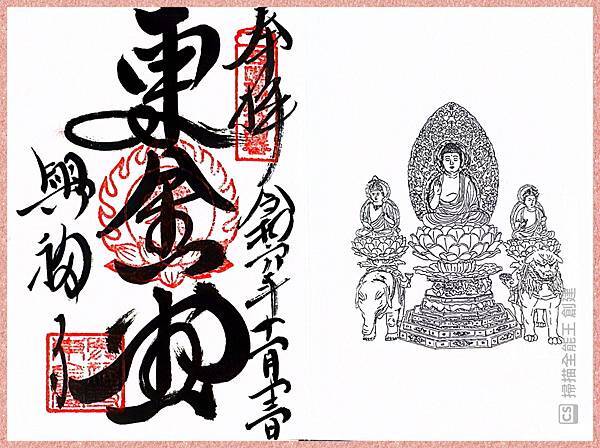 奉拝
令和六年十一月
東金堂
興福寺
CS 掃描全能王 創建